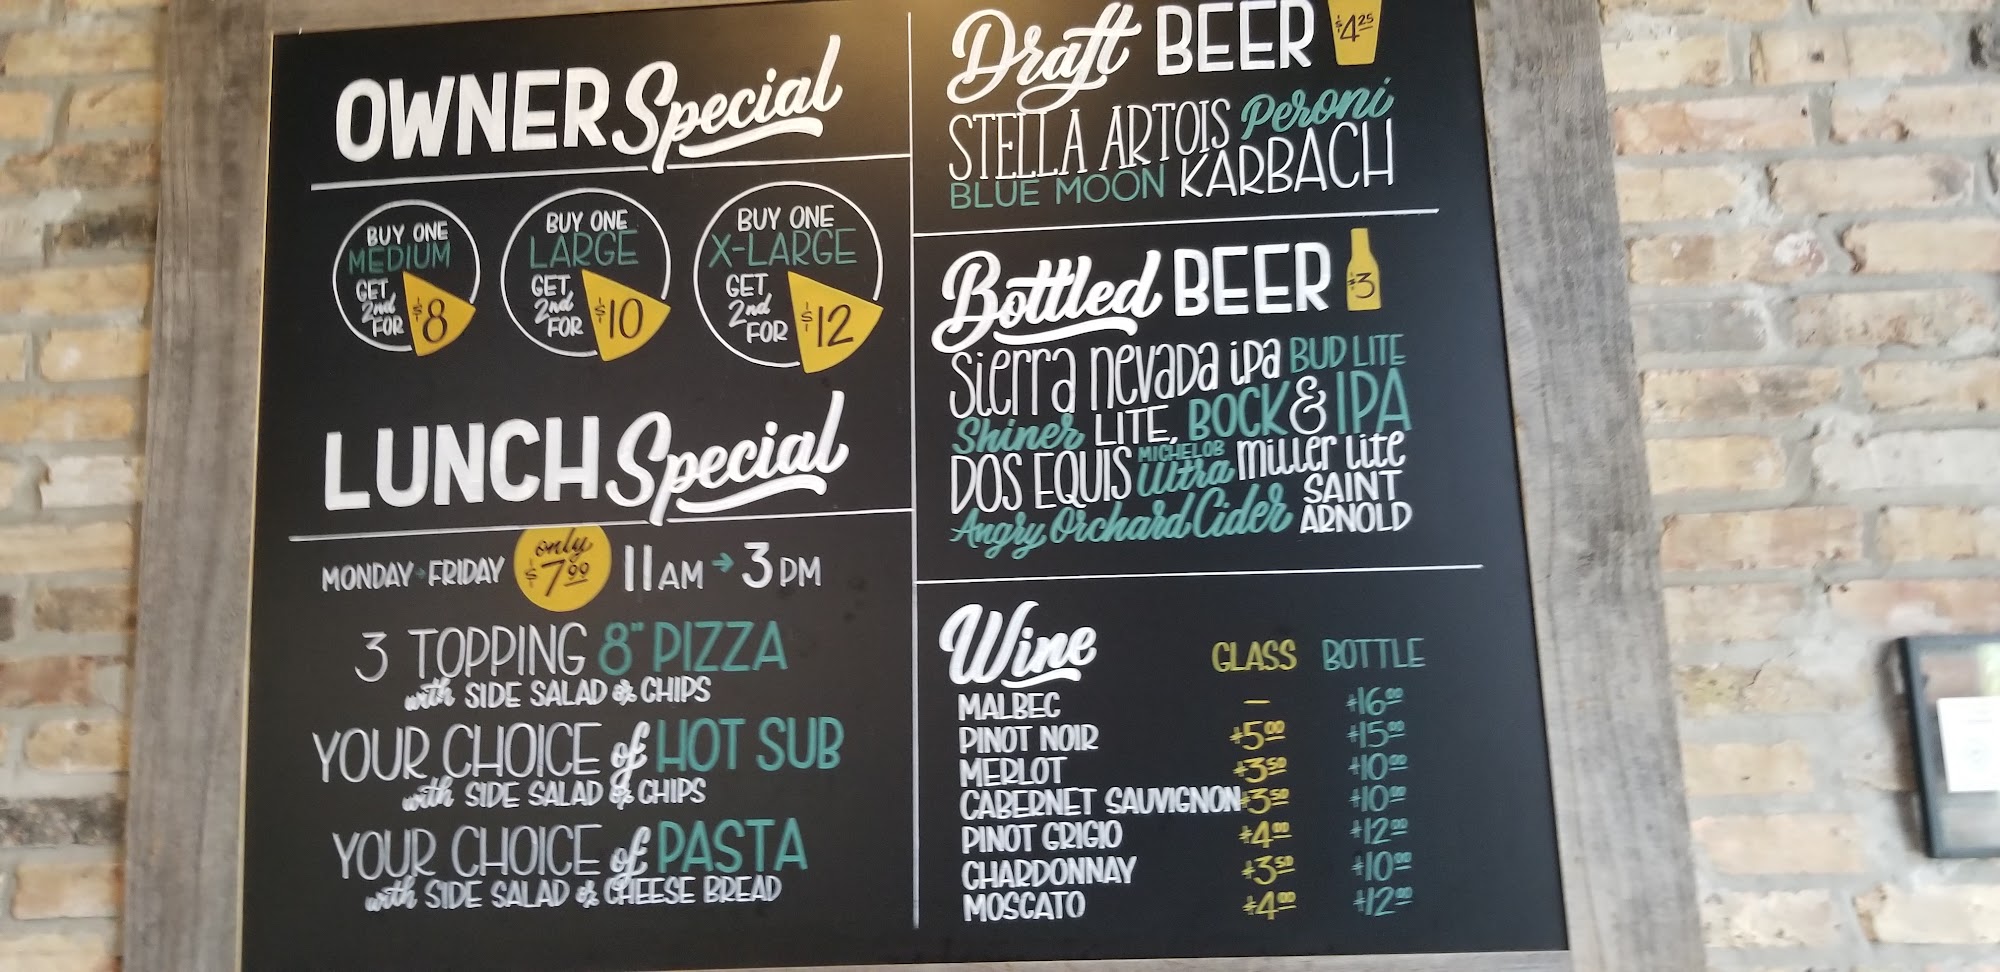 OWNER Special
BUY ONE
MEDIUM
GET
2nd
FOR
$8
BUY ONE
LARGE
GET
2nd
FOR
$10
BUY ONE
X-LARGE
GET
2nd
FOR
$12
LUNCH Special
MONDAY → FRIDAY
only
$7.99
11 AM → 3 PM
3 TOPPING 8" PIZZA
with SIDE SALAD or CHIPS
YOUR CHOICE of HOT SUB
with SIDE SALAD or CHIPS
YOUR CHOICE of PASTA
with SIDE SALAD or CHEESE BREAD
Draft BEER $4.25
STELLA ARTOIS Peroni
BLUE MOON KARBACH
Bottled BEER $3
Sierra nevada ipa BUD LITE
Shiner LITE, BOCK & IPA
DOS EQUIS MICHELOB Ultra Miller Lite
Angry Orchard Cider SAINT ARNOLD
Wine GLASS BOTTLE
MALBEC – $16.00
PINOT NOIR $5.00 $15.00
MERLOT $3.50 $10.00
CABERNET SAUVIGNON $3.50 $10.00
PINOT GRIGIO $4.00 $12.00
CHARDONNAY $3.50 $10.00
MOSCATO $4.00 $12.00